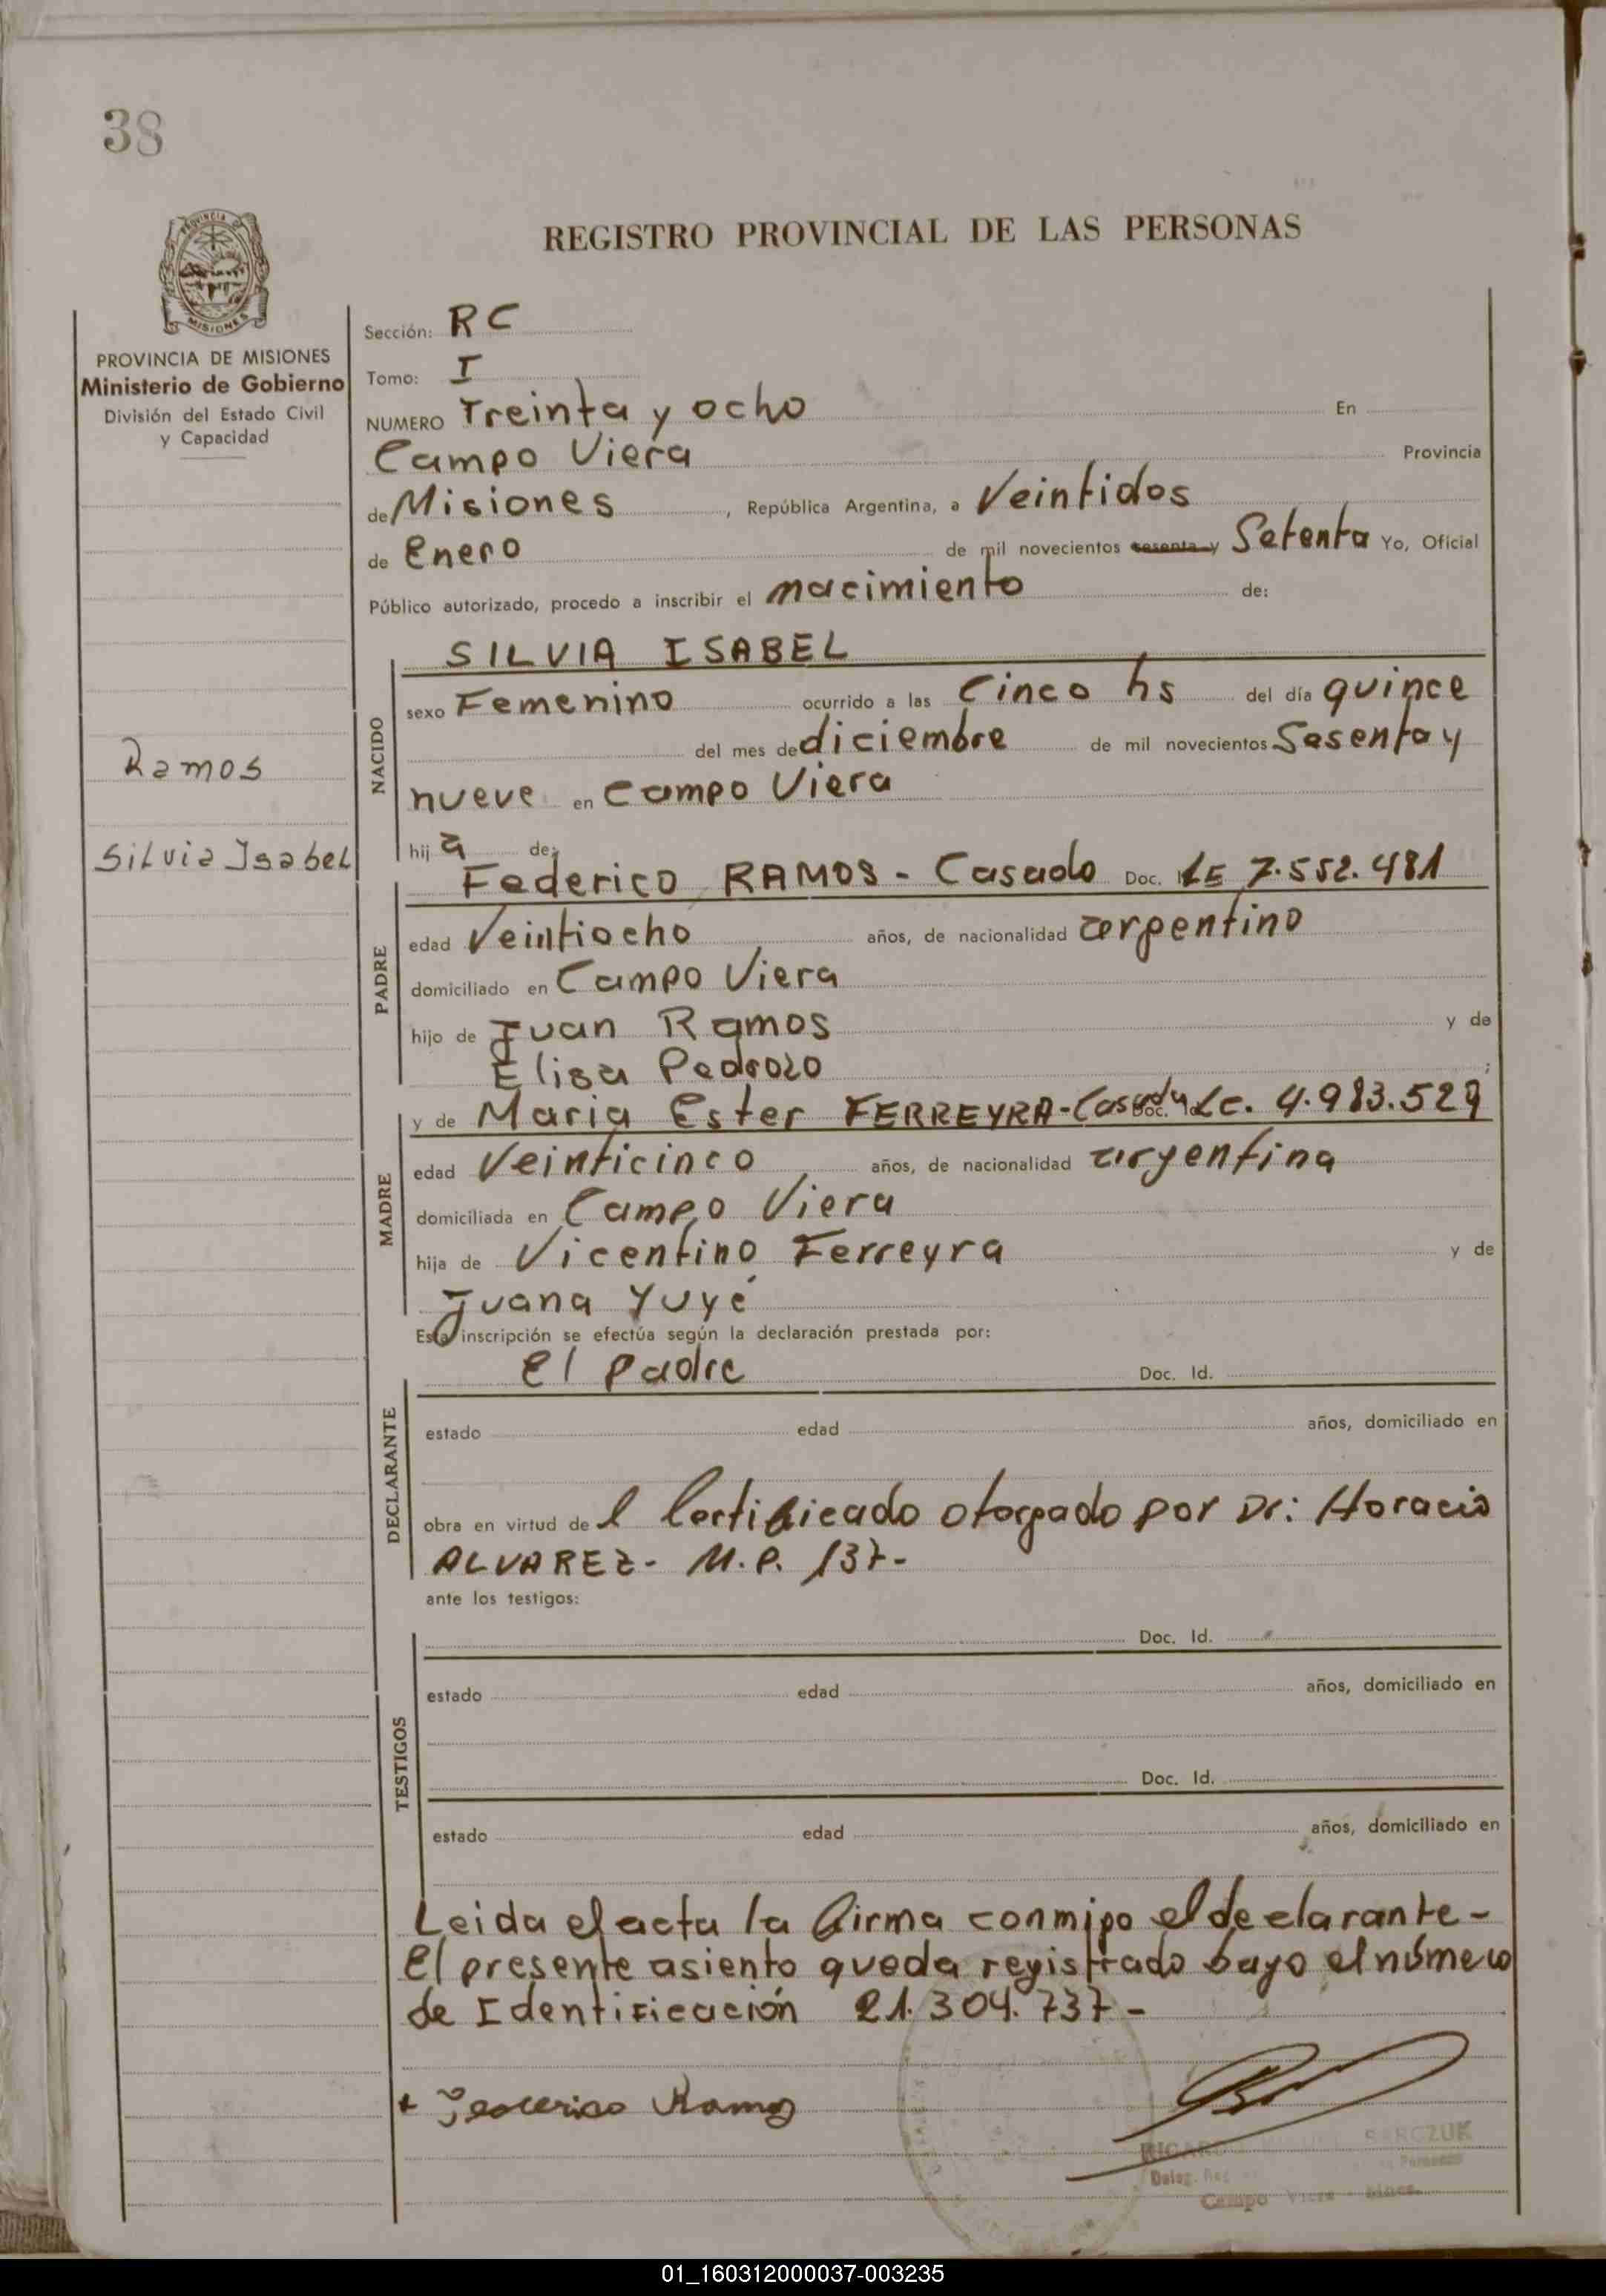 38
REGISTRO PROVINCIAL DE LAS PERSONAS
MISIONES
PROVINCIA DE MISIONES
Ministerio de Gobierno
División del Estado Civil
y Capacidad
Ramos
Silvia Isabel
Sección: RC
Tomo: I
NUMERO Treinta y ocho En
Campo Viera Provincia
de Misiones , República Argentina, a Veintidos
de Enero de mil novecientos sesenta y Setenta Yo, Oficial
Público autorizado, procedo a inscribir el nacimiento de:
NACIDO
SILVIA ISABEL
sexo Femenino ocurrido a las Cinco hs del día quince
del mes de diciembre de mil novecientos Sesenta y
nueve en Campo Viera
hij a de:
PADRE
Federico RAMOS - Casado Doc. LE 7.552.481
edad Veintiocho años, de nacionalidad argentino
domiciliado en Campo Viera
hijo de Juan Ramos y de
Elisa Pedrozo ;
MADRE
y de Maria Ester FERREYRA - Casada Doc. Lc. 4.983.529
edad Veinticinco años, de nacionalidad argentina
domiciliada en Campo Viera
hija de Vicentino Ferreyra y de
Juana Yuyé
Esta inscripción se efectúa según la declaración prestada por:
DECLARANTE
El padre Doc. Id.
estado edad años, domiciliado en
obra en virtud de l Certificado otorgado por Dr: Horacio
ALVAREZ - M.P. 137-
ante los testigos:
TESTIGOS
Doc. Id.
estado edad años, domiciliado en
Doc. Id.
estado edad años, domiciliado en
Leida el acta la firma conmigo el declarante -
El presente asiento queda registrado bayo el número
de Identificación 21.304.737 -
+ Federico Ramos
Campo Viera
01_160312000037-003235